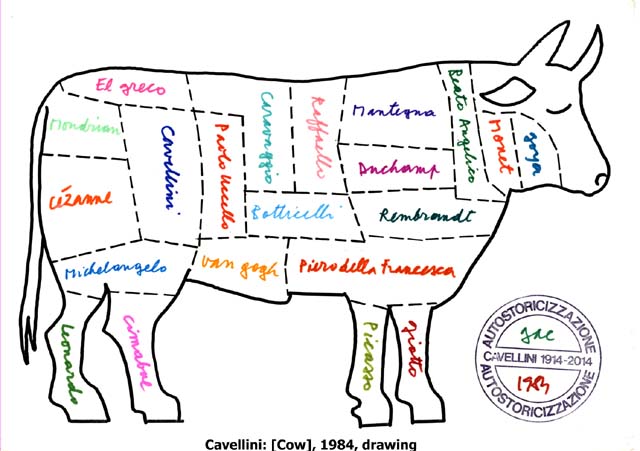 El greco
Mondrian
Cavellini
Paolo Uccello
Caravaggio
Raffaello
Mantegna
Beato Angelico
Monet
Goya
Duchamp
Cézanne
Botticelli
Rembrandt
Michelangelo
Van gogh
Piero della Francesca
Leonardo
Cimabue
Picasso
Giotto
AUTOSTORICIZZAZIONE
GAC
CAVELLINI 1914-2014
1984
AUTOSTORICIZZAZIONE
Cavellini: [Cow], 1984, drawing